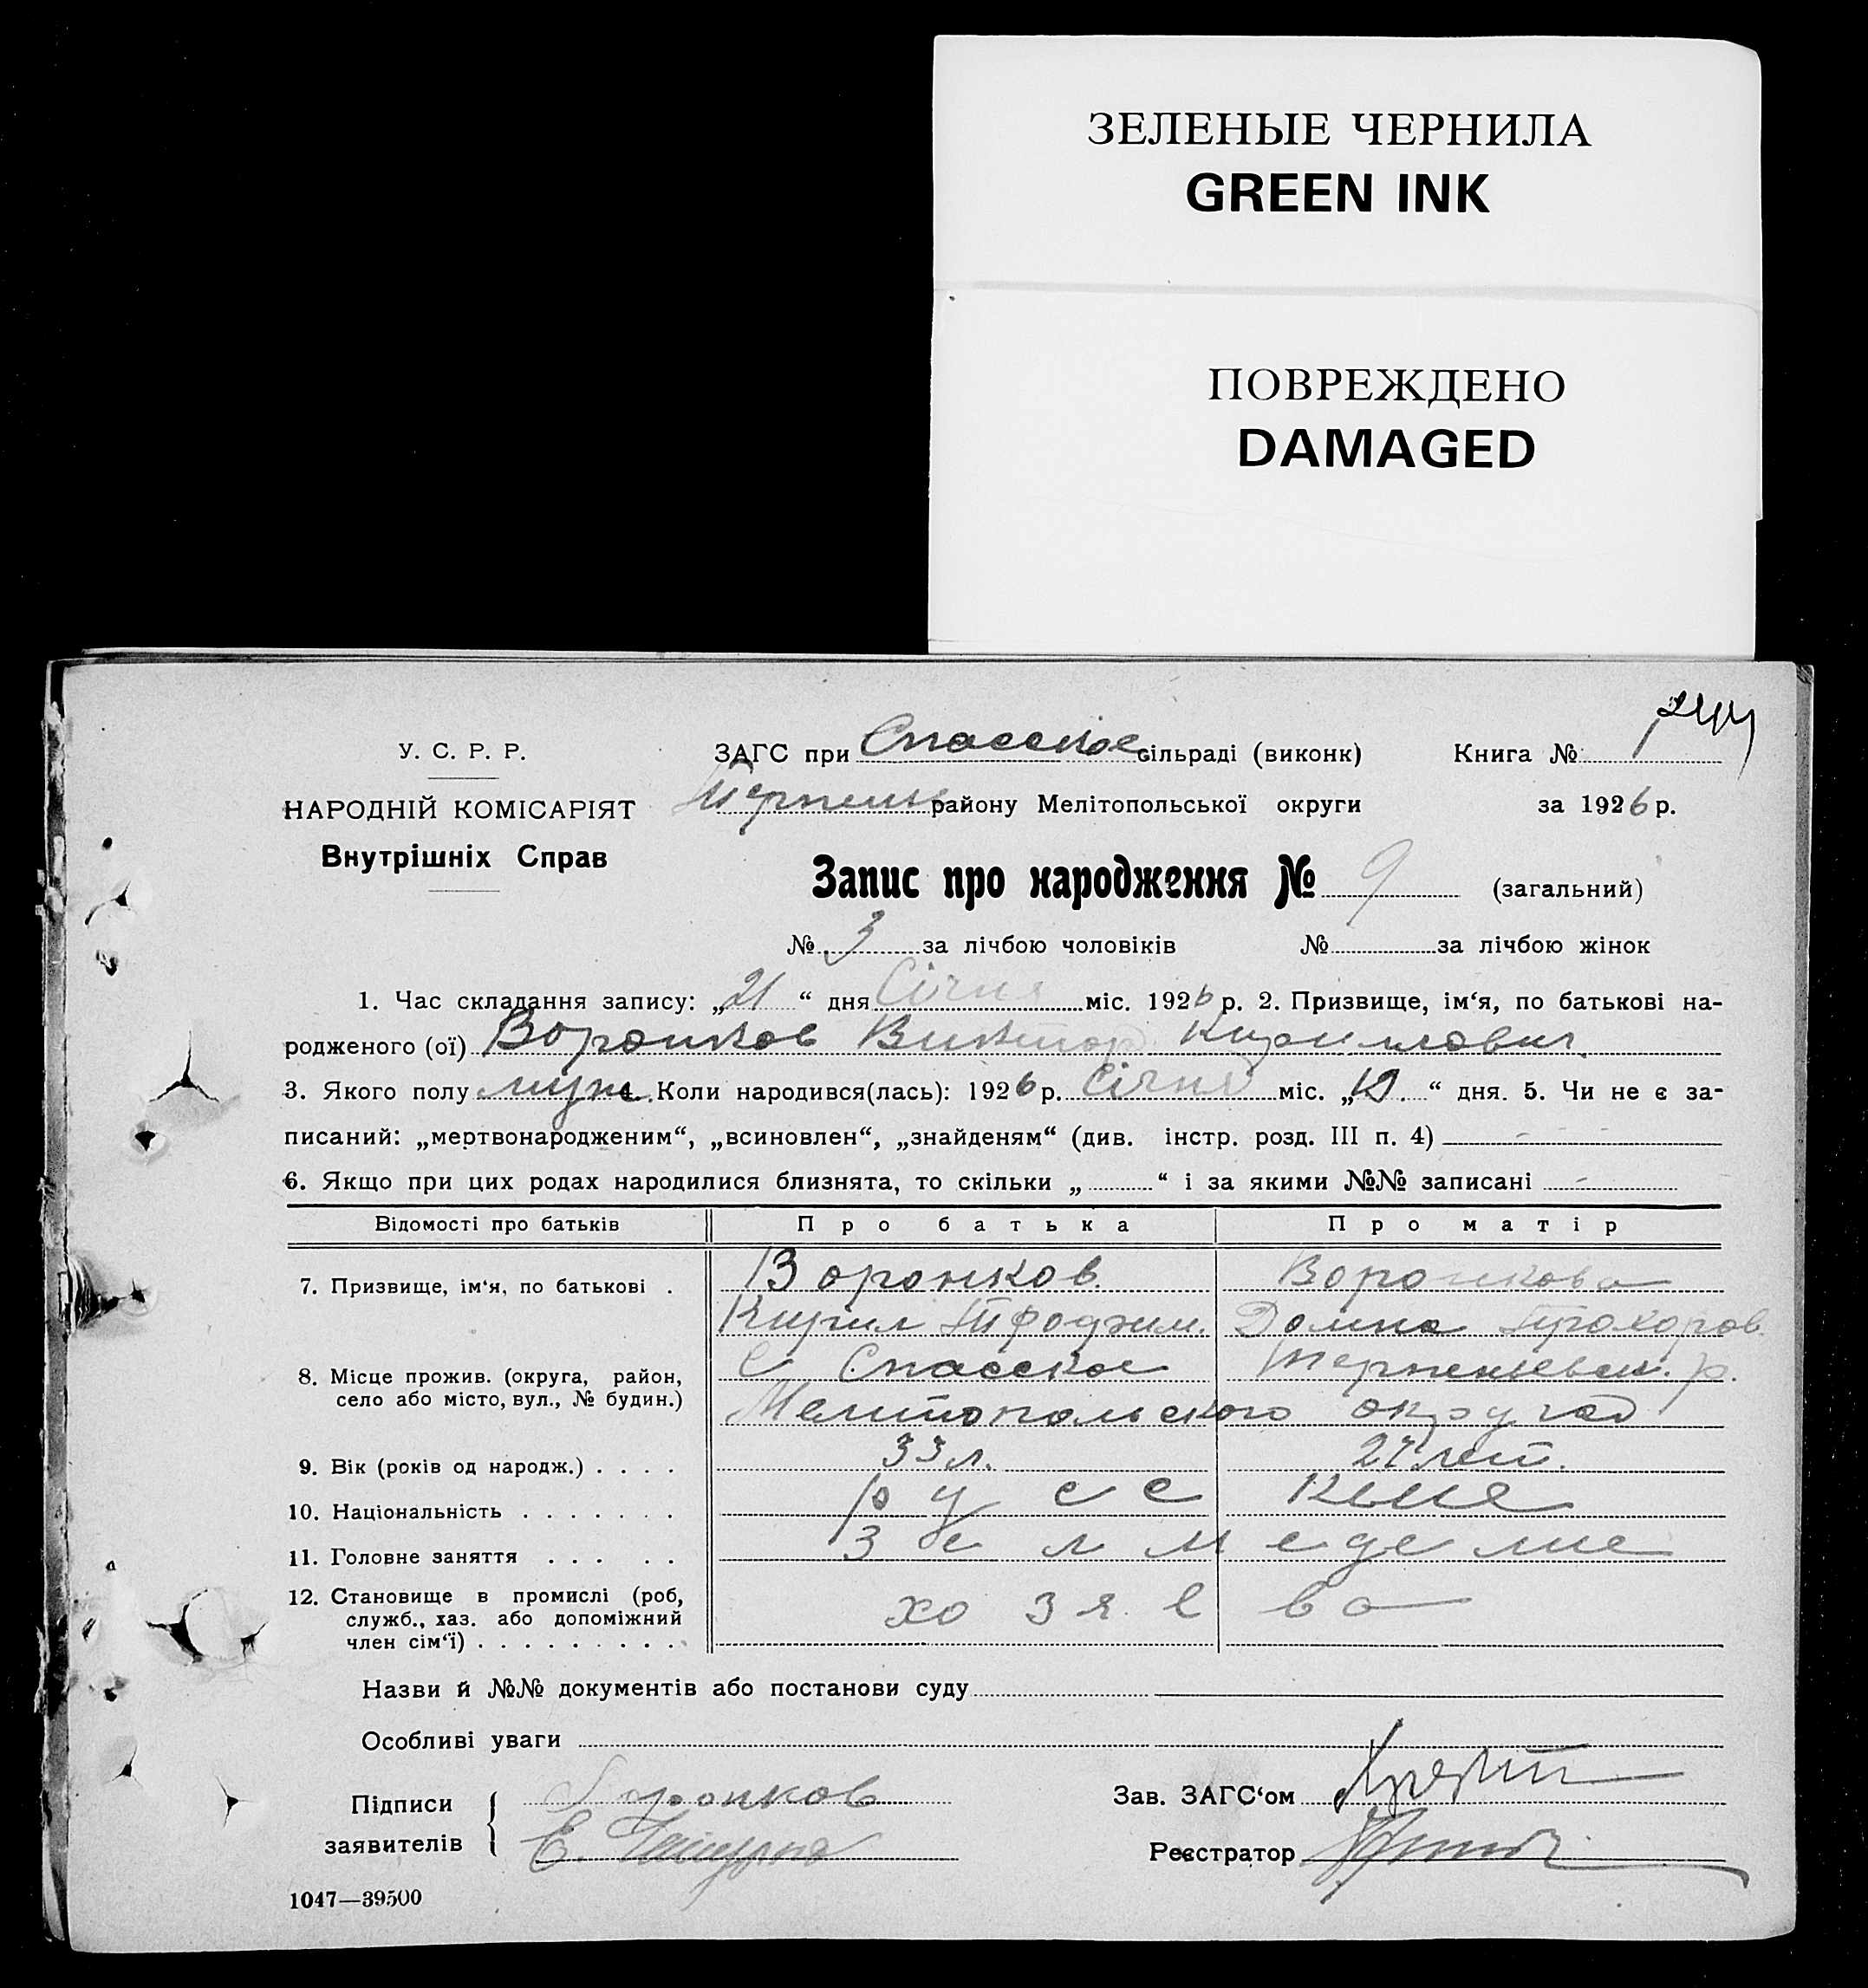 ЗЕЛЕНЫЕ ЧЕРНИЛА
GREEN INK
ПОВРЕЖДЕНО
DAMAGED
У. С. Р. Р.
НАРОДНІЙ КОМІСАРІЯТ
Внутрішніх Справ
ЗАГС при Спасское сільраді (виконк) Книга № 1
району Мелітопольської округи за 1926 р.
Запис про народження № 9 (загальний)
№ 3 за лічбою чоловіків № за лічбою жінок
1. Час складання запису: „21“ дня Січня міс. 1926 р. 2. Призвище, ім‘я, по батькові на-
родженого (ої) Воронков Виктор Кириллович
3. Якого полу муж 4. Коли народився(лась): 1926 р. Січня міс. „ “ дня. 5. Чи не є за-
писаний: „мертвонародженим“, „всиновлен“, „знайденям“ (див. інстр. розд. III п. 4)
6. Якщо при цих родах народилися близнята, то скільки „ “ і за якими №№ записані
Відомості про батьків Про батька Про матір
7. Призвище, ім‘я, по батькові . Воронков Воронкова
Кирил Домна Прохоров.
8. Місце прожив. (округа, район, село або місто, вул., № будин.) с Спасское р.
Мелитопольского округа
9. Вік (років од народж.) . . . . 33 л. 27 лет.
10. Національність . . . . . . . русские
11. Головне заняття . . . . . земледелие
12. Становище в промислі (роб,
служб., хаз. або допоміжний
член сім‘ї) . . . . . . . . . . хозяева
Назви й №№ документів або постанови суду
Особливі уваги
Підписи
заявителів
Воронков
Зав. ЗАГС‘ом
Реєстратор
1047—39500